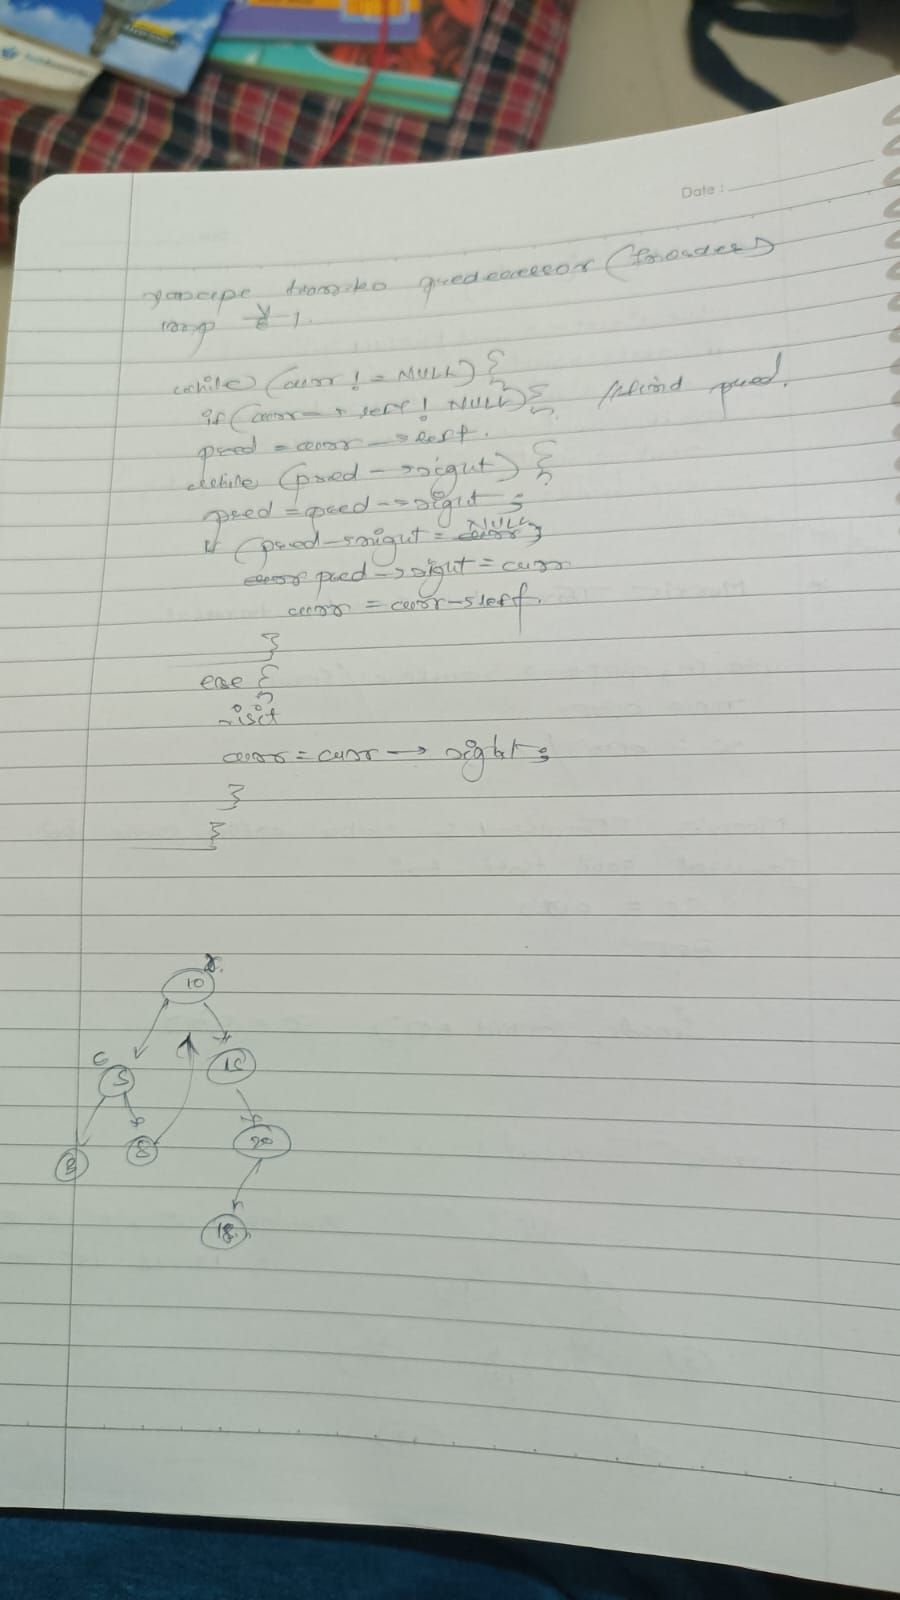 Date :
predecessor
while (curr != NULL) {
if (curr → left ! NULL) { // find pred.
pred = curr → left.
while (pred → right) {
pred = pred → right ;
if (pred → right = NULL }
pred → right = curr
curr = curr → left.
}
else {
visit
curr = curr → right ;
}
}
10
c
5
15
8
20
18